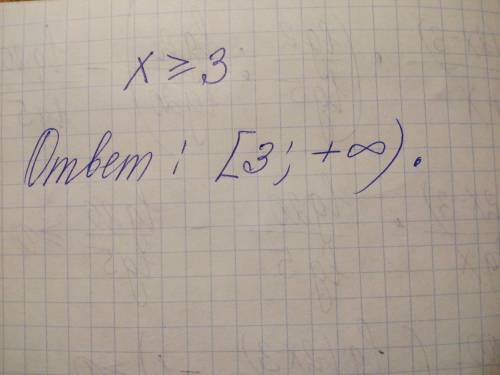 x ≥ 3
Ответ: [3; +∞).